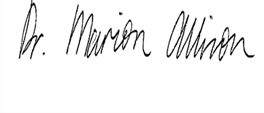 Dr. Marion Allison